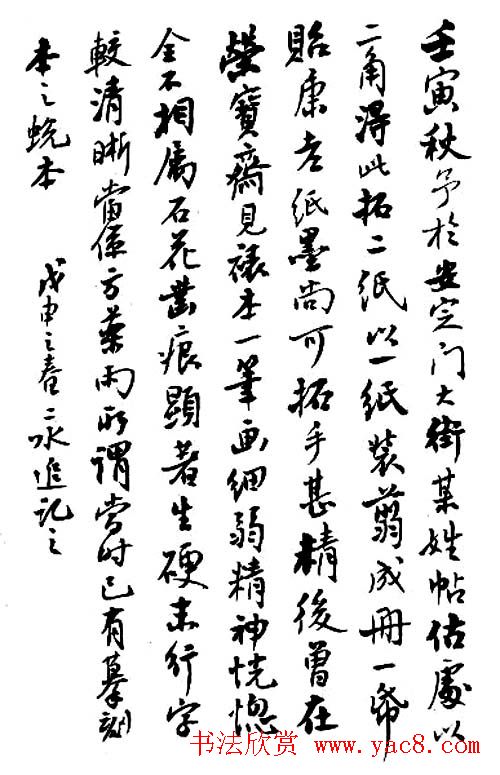 壬寅秋予於安定门大街某姓帖估處以
二角得此拓二紙以一紙装翦成冊一帋
貽康老紙墨尚可拓手甚精後曾在
榮寶齋見裱本一筆画细弱精神恍惚
全不相属石花凿痕顯著生硬末行字
較清晰當係方藥雨所謂當时已有摹刻
本之蜕本　戊申之春二水追记之
书法欣赏 www.yac8.com